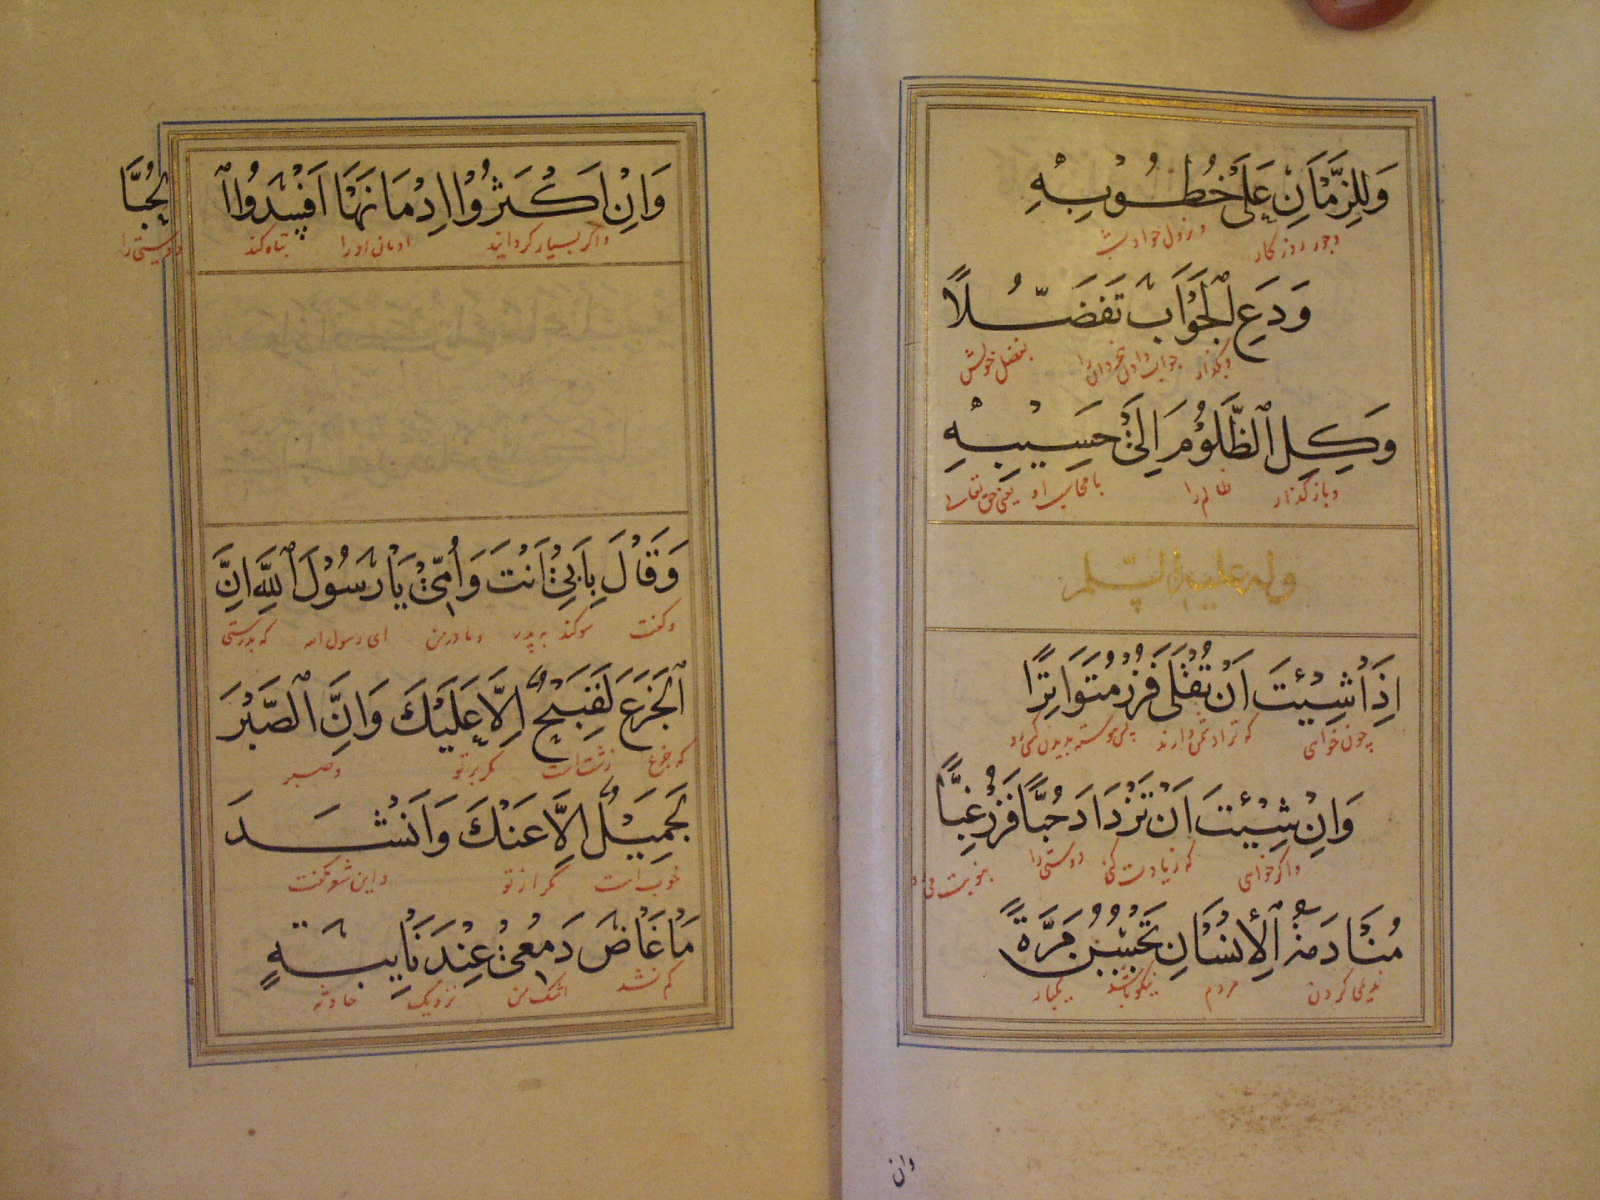 وَلِلزَّمَانِ عَلَىٰ خُطُوبِهِ
وجور روزگار و نزول حوادث
وَدَعِ ٱلْجَوَابَ تَفَضُّلًا
وبگذار جواب دادن بتفضل خویش
وَكِلِ ٱلظَّلُومَ اِلَىٰ حَسِيبِهِ
و باز گذار ظالم را با محاسب او یعنی حق تعالی
وله علیه السلم
اِذَا شِئْتَ اَنْ تُقْلَى فَزُرْ مُتَوَاتِرًا
چون خواهی که ترا دشمن دارند پس پیوسته بدیدن کسی رو
وَاِنْ شِئْتَ اَنْ تَزْدَادَ حُبًّا فَزُرْ غِبًّا
و اگر خواهی که زیادت کنی دوستی را بنوبت می رو
مُنَادَمَةُ ٱلْاِنْسَانِ تَحْسُنُ مَرَّةً
ندیمی کردن مردم نیکو باشد یکبار
وان
وَاِنْ اَكْثَرُوا اِدْمَانَهَا اَفْسَدُوا ٱلْحُبَّا
و اگر بسیار گردانند ادمان او را تباه کند دوستی را
وَقَالَ بِاَبِي اَنْتَ وَاُمِّي يَا رَسُولَ ٱللهِ اِنَّ
و گفت سوگند به پدر و مادر من ای رسول الله که بدرستی
ٱلْجَزَعَ لَقَبِيحٌ اِلَّا عَلَيْكَ وَاِنَّ ٱلصَّبْرَ
که جزع زشت است مگر بر تو و صبر
لَجَمِيلٌ اِلَّا عَنْكَ وَاَنْشَدَ
خوب است مگر از تو و این شعر گفت
مَا غَاضَ دَمْعِي عِنْدَ نَايِبَةٍ
کم نشد اشک من نزدیک حادثه